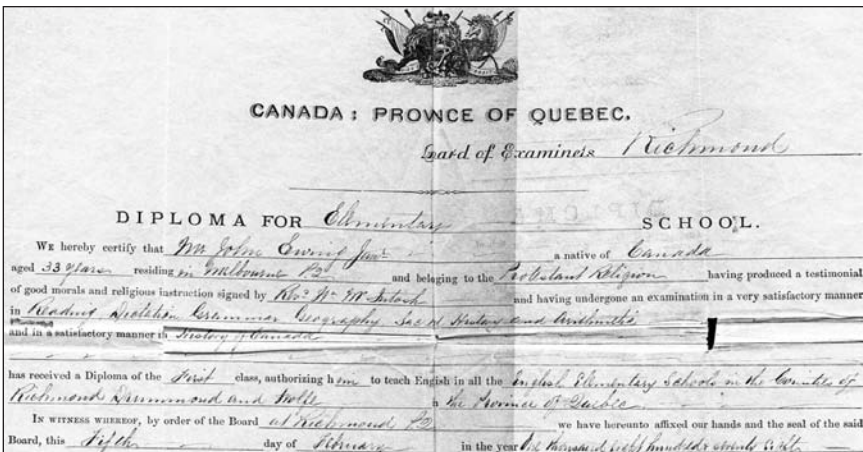 CANADA: PROVINCE OF QUEBEC.
Board of Examiners Richmond
DIPLOMA FOR Elementary SCHOOL.
WE hereby certify that Mr John Ewing Junr a native of Canada
aged 33 years residing in Melbourne P.Q and beloging to the Protestant Religion having produced a testimonial
of good morals and religious instruction signed by Revd Wm and having undergone an examination in a very satisfactory manner
in Reading Dictation Grammar Geography Sacred History and Arithmetic
and in a satisfactory manner in History of Canada
has received a Diploma of the First class, authorizing him to teach Engish in all the English Elementary Schools in the Counties of
Richmond Drummond and Wolfe in the Province of Quebec
IN WITNESS WHEREOF, by order of the Board at Richmond P.Q we have hereunto affixed our hands and the seal of the said
Board, this Fifth day of February in the year One thousand eight hundred & seventy eight